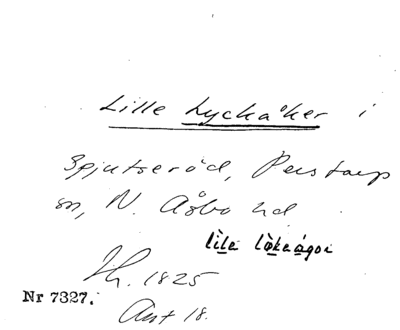 Lille Lyckåker i
Spjutseröd, Perstorp
sn, N. Åsbo hd
lìle lòkeágor
Lh. 1825
Nr 7327.
Akt 18.